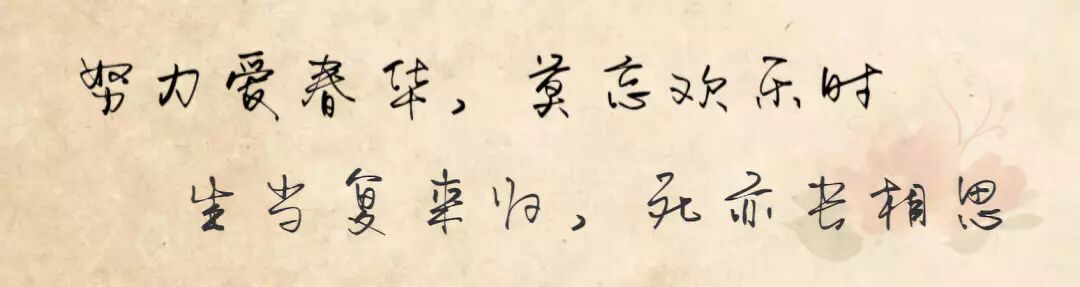 努力爱春华，莫忘欢乐时
生当复来归，死亦长相思